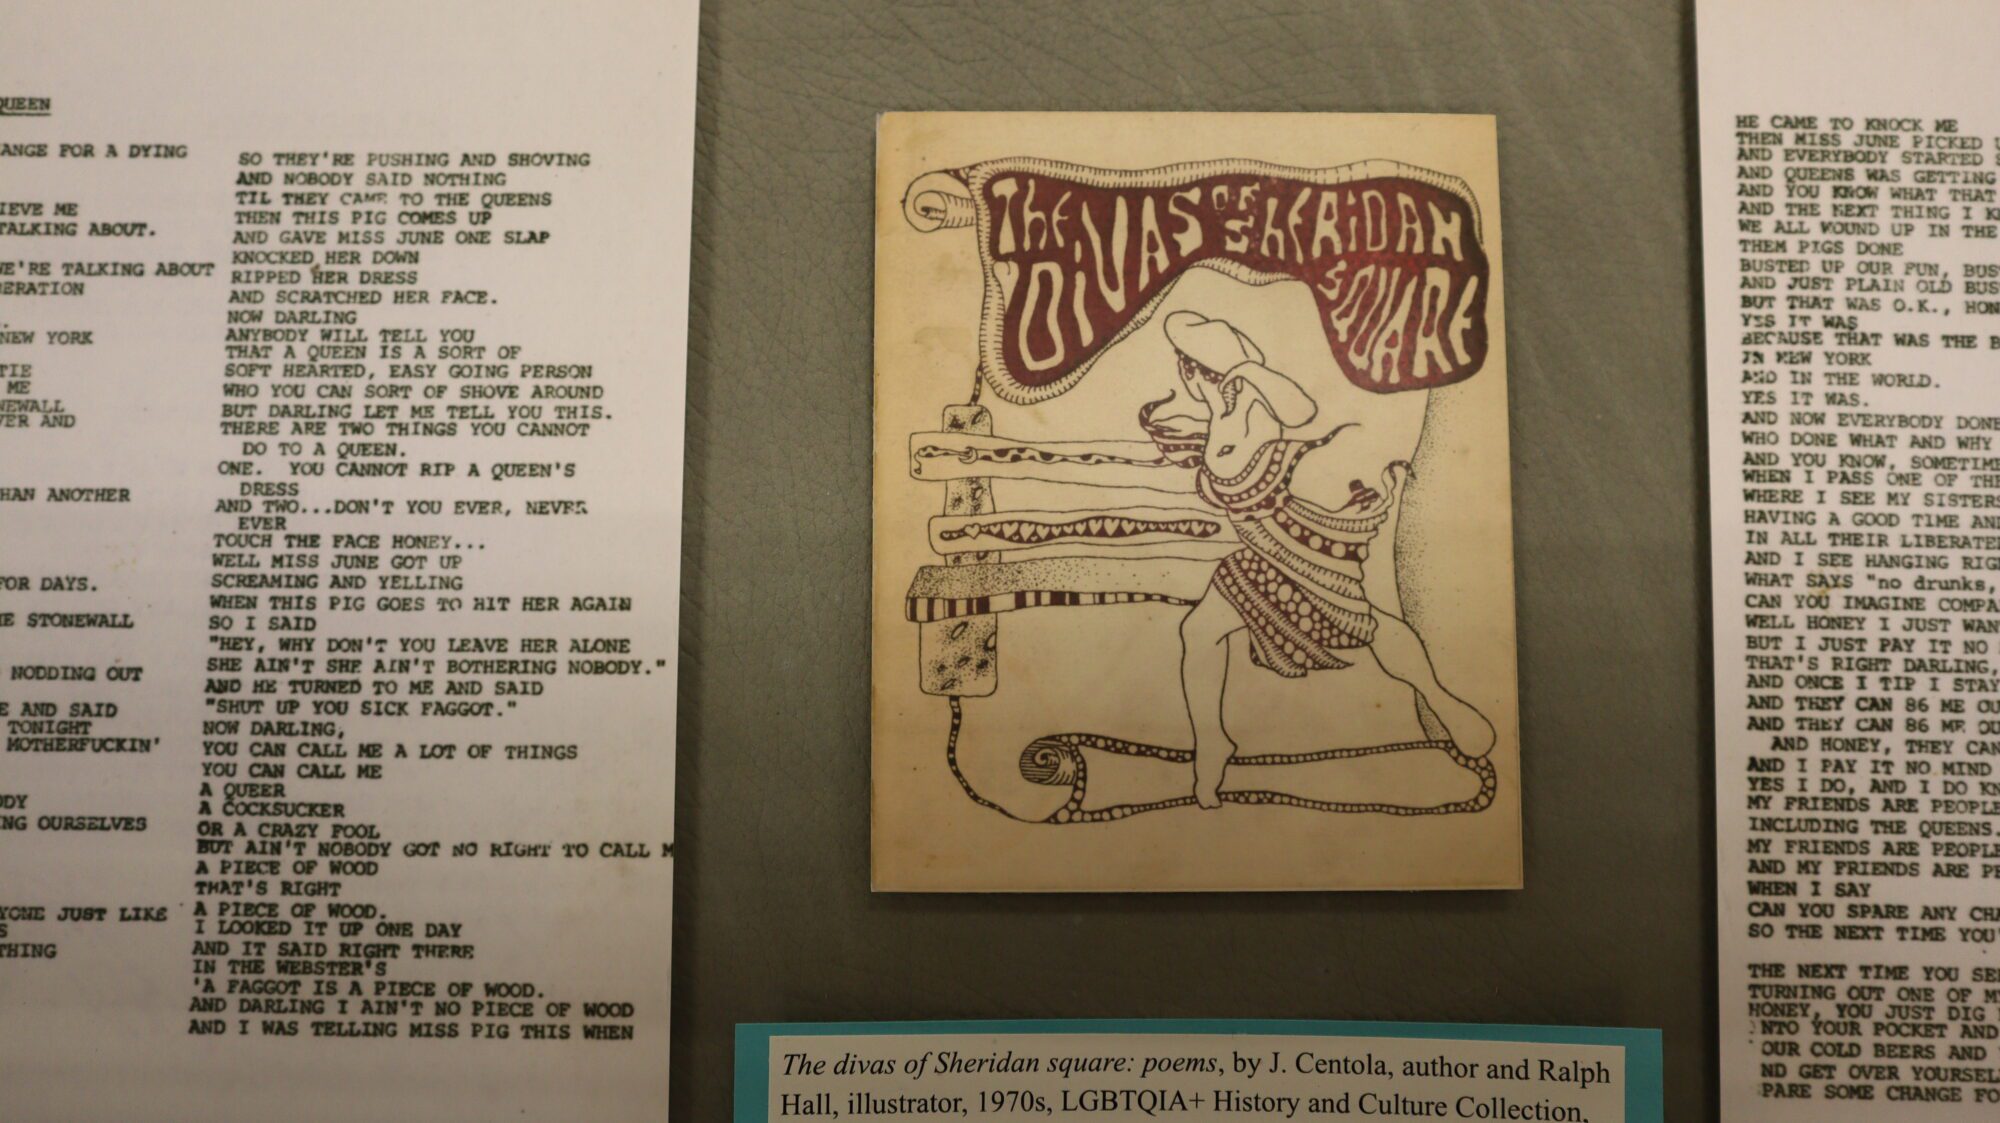 QUEEN
ANGE FOR A DYING
IEVE ME
TALKING ABOUT.
E'RE TALKING ABOUT
ERATION
NEW YORK
TIE
ME
NEWALL
VER AND
HAN ANOTHER
FOR DAYS.
E STONEWALL
NODDING OUT
E AND SAID
TONIGHT
MOTHERFUCKIN'
DY
NG OURSELVES
YONE JUST LIKE
S
THING
SO THEY'RE PUSHING AND SHOVING
AND NOBODY SAID NOTHING
TIL THEY CAME TO THE QUEENS
THEN THIS PIG COMES UP
AND GAVE MISS JUNE ONE SLAP
KNOCKED HER DOWN
RIPPED HER DRESS
AND SCRATCHED HER FACE.
NOW DARLING
ANYBODY WILL TELL YOU
THAT A QUEEN IS A SORT OF
SOFT HEARTED, EASY GOING PERSON
WHO YOU CAN SORT OF SHOVE AROUND
BUT DARLING LET ME TELL YOU THIS.
THERE ARE TWO THINGS YOU CANNOT
DO TO A QUEEN.
ONE. YOU CANNOT RIP A QUEEN'S
DRESS
AND TWO...DON'T YOU EVER, NEVER
EVER
TOUCH THE FACE HONEY...
WELL MISS JUNE GOT UP
SCREAMING AND YELLING
WHEN THIS PIG GOES TO HIT HER AGAIN
SO I SAID
"HEY, WHY DON'T YOU LEAVE HER ALONE
SHE AIN'T SHE AIN'T BOTHERING NOBODY."
AND HE TURNED TO ME AND SAID
"SHUT UP YOU SICK FAGGOT."
NOW DARLING,
YOU CAN CALL ME A LOT OF THINGS
YOU CAN CALL ME
A QUEER
A COCKSUCKER
OR A CRAZY FOOL
BUT AIN'T NOBODY GOT NO RIGHT TO CALL M
A PIECE OF WOOD
THAT'S RIGHT
A PIECE OF WOOD.
I LOOKED IT UP ONE DAY
AND IT SAID RIGHT THERE
IN THE WEBSTER'S
'A FAGGOT IS A PIECE OF WOOD.
AND DARLING I AIN'T NO PIECE OF WOOD
AND I WAS TELLING MISS PIG THIS WHEN
THE DIVAS OF SHERIDAN SQUARE
The divas of Sheridan square: poems, by J. Centola, author and Ralph
Hall, illustrator, 1970s, LGBTQIA+ History and Culture Collection,
HE CAME TO KNOCK ME
THEN MISS JUNE PICKED U
AND EVERYBODY STARTED S
AND QUEENS WAS GETTING
AND YOU KNOW WHAT THAT
AND THE NEXT THING I K
WE ALL WOUND UP IN THE
THEM PIGS DONE
BUSTED UP OUR FUN, BUS
AND JUST PLAIN OLD BUS
BUT THAT WAS O.K., HON
YES IT WAS
BECAUSE THAT WAS THE B
IN NEW YORK
AND IN THE WORLD.
YES IT WAS.
AND NOW EVERYBODY DONE
WHO DONE WHAT AND WHY
AND YOU KNOW, SOMETIME
WHEN I PASS ONE OF THE
WHERE I SEE MY SISTERS
HAVING A GOOD TIME AND
IN ALL THEIR LIBERATE
AND I SEE HANGING RIG
WHAT SAYS "no drunks,
CAN YOU IMAGINE COMPA
WELL HONEY I JUST WAN
BUT I JUST PAY IT NO
THAT'S RIGHT DARLING,
AND ONCE I TIP I STAY
AND THEY CAN 86 ME OU
AND THEY CAN 86 ME OU
AND HONEY, THEY CAN
AND I PAY IT NO MIND
YES I DO, AND I DO KN
MY FRIENDS ARE PEOPLE
INCLUDING THE QUEENS.
MY FRIENDS ARE PEOPLE
AND MY FRIENDS ARE PE
WHEN I SAY
CAN YOU SPARE ANY CHA
SO THE NEXT TIME YOU'
THE NEXT TIME YOU SEE
TURNING OUT ONE OF M
HONEY, YOU JUST DIG
NTO YOUR POCKET AND
OUR COLD BEERS AND
ND GET OVER YOURSEL
PARE SOME CHANGE FO